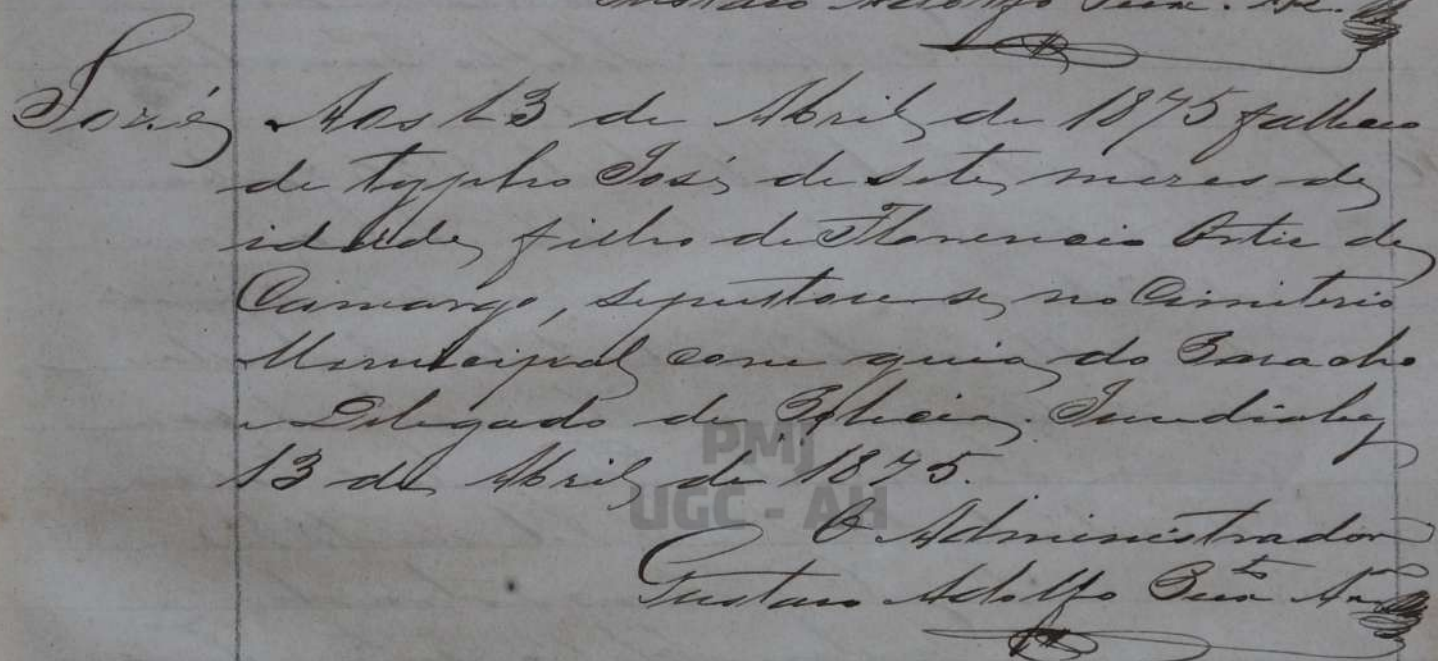 Gustavo Adolfo
José
Aos 13 de Abril de 1875 falleceo
de typho José, de sete mezes de
idade, filho de Florencio Ortiz de
Camargo, sepultou-se no Cimiterio
Municipal com guia do Parocho
e Delegado de Policia. Jundiahy
13 de Abril de 1875.
O Administrador
Gustavo Adolfo
PMJ
UGC - AH